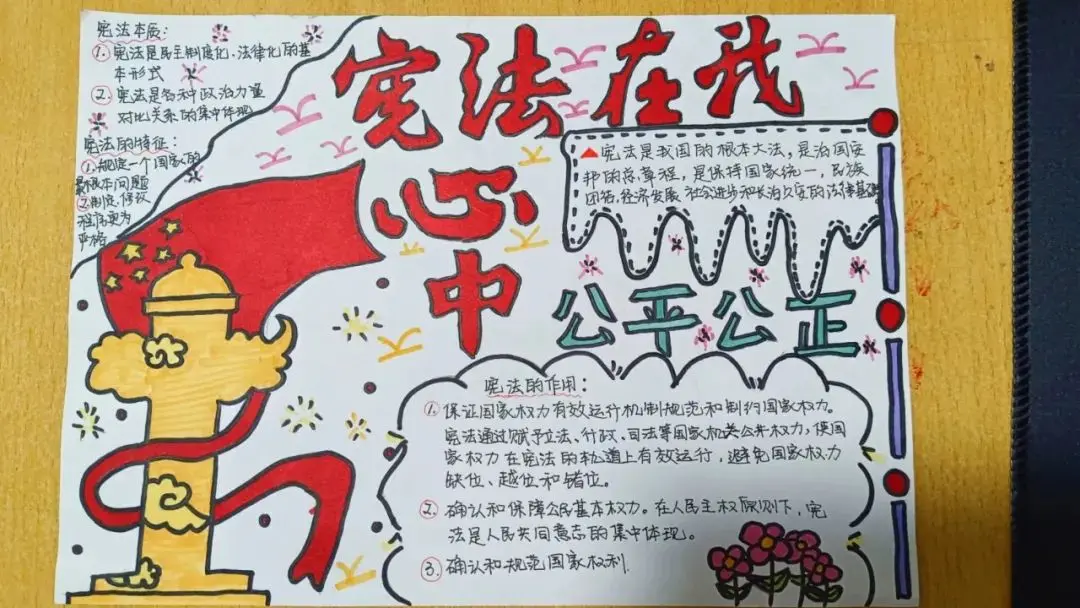 宪法本质:
1. 宪法是民主制度化、法律化的基
本形式
2. 宪法是各种政治力量
对比关系的集中体现
宪法的特征:
1.规定一个国家的
最根本问题
2.制定、修改
程序更为
严格
宪法在我
心
中
宪法是我国的根本大法,是治国安
邦的总章程,是保持国家统一,民族
团结,经济发展 社会进步和长治久安的法律基础
公平公正
宪法的作用:
1. 保证国家权力有效运行机制规范和制约国家权力。
宪法通过赋予立法、行政、司法等国家机关公共权力,使国
家权力在宪法的轨道上有效运行,避免国家权力
缺位、越位和错位。
2. 确认和保障公民基本权力。在人民主权原则下,宪
法是人民共同意志的集中体现。
3. 确认和规范国家权利.